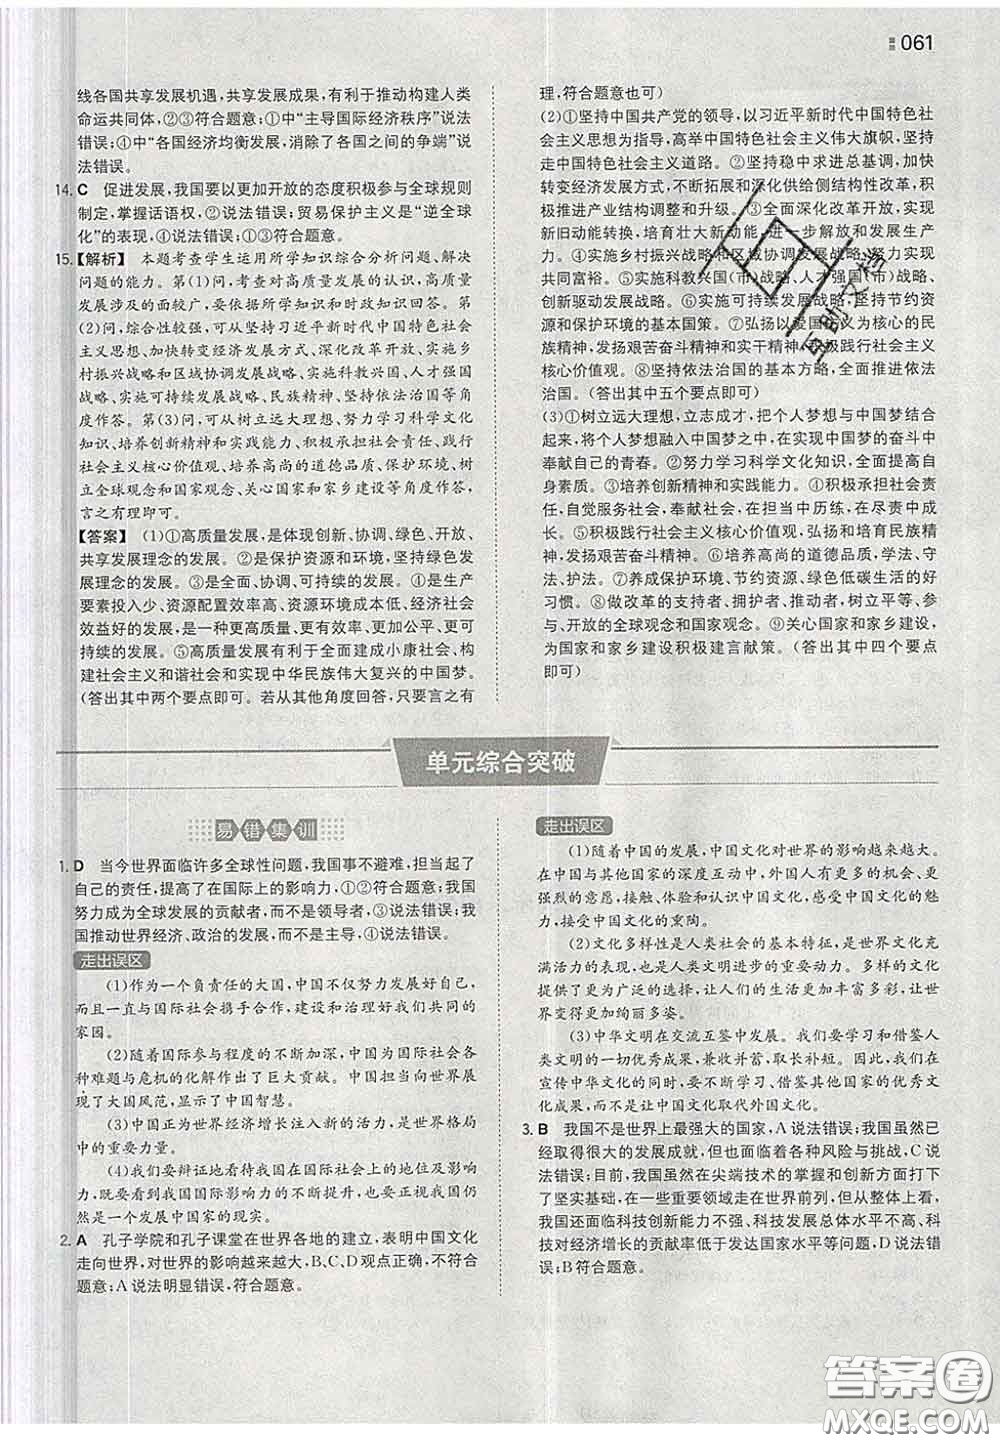 061
线各国共享发展机遇，共享发展成果，有利于推动构建人类
命运共同体，②③符合题意；①中“主导国际经济秩序”说
法错误；④中“各国经济均衡发展，消除了各国之间的争端”说
法错误。
14. C 促进发展，我国要以更加开放的态度积极参与全球规则
制定，掌握话语权，②说法错误；贸易保护主义是“逆全球
化”的表现，④说法错误；①③符合题意。
15.【解析】 本题考查学生运用所学知识综合分析问题、解决
问题的能力。第(1)问，考查对高质量发展的认识，高质量
发展涉及的面较广，要依据所学知识和时政知识回答。第
(2)问，综合性较强，可从坚持习近平新时代中国特色社会
主义思想、加快转变经济发展方式、深化改革开放、实施乡
村振兴战略和区域协调发展战略、实施科教兴国、人才强国
战略、实施可持续发展战略、弘扬民族精神、坚持依法治国等角
度作答。第(3)问，可从树立远大理想、努力学习科学文化
知识、培养创新精神和实践能力、积极承担社会责任、践行
社会主义核心价值观、培养高尚的道德品质、保护环境、树
立全球观念和国家观念、关心国家和家乡建设等角度作答，
言之有理即可。
【答案】 (1)①高质量发展，是体现创新、协调、绿色、开放、
共享发展理念的发展。②是保护资源和环境，坚持绿色发
展理念的发展。③是全面、协调、可持续的发展。④是生产
要素投入少、资源配置效率高、资源环境成本低、经济社会
效益好的发展，是一种更高质量、更有效率、更加公平、更可
持续的发展。⑤高质量发展有利于全面建成小康社会、构
建社会主义和谐社会和实现中华民族伟大复兴的中国梦。
(答出其中两个要点即可。若从其他角度回答，只要言之有
理，符合题意也可)
(2)①坚持中国共产党的领导，以习近平新时代中国特色社
会主义思想为指导，高举中国特色社会主义伟大旗帜，坚持
走中国特色社会主义道路。②坚持稳中求进总基调，加快
转变经济发展方式，不断拓展和深化供给侧结构性改革，积
极推进产业结构调整和升级。③全面深化改革开放，加快
新旧动能转换，培育壮大新动能，进一步解放和发展生产
力。④实施乡村振兴战略和区域协调发展战略，逐步实现
共同富裕。⑤实施科教兴国(市)战略、人才强国(市)战略、
创新驱动发展战略。⑥实施可持续发展战略，坚持节约资
源和保护环境的基本国策。⑦弘扬以爱国主义为核心的民
族精神，发扬艰苦奋斗精神和实干精神，积极践行社会主义
核心价值观。⑧坚持依法治国的基本方略，全面推进依法
治国。(答出其中五个要点即可)
(3)①树立远大理想，立志成才，把个人梦想与中国梦结合
起来，将个人梦想融入中国梦之中，在实现中国梦的奋斗中
奉献自己的青春。②努力学习科学文化知识，全面提高自
身素质。③培养创新精神和实践能力。④积极承担社会责
任，自觉服务社会，奉献社会，在担当中历练，在尽责中成
长。⑤积极践行社会主义核心价值观，弘扬和培育民族精
神，发扬艰苦奋斗精神。⑥培养高尚的道德品质，学法、守
法、护法。⑦养成保护环境、节约资源、绿色低碳生活的好
习惯。⑧做改革的支持者、拥护者、推动者，树立平等、参
与、开放的全球观念和国家观念。⑨关心国家和家乡建设，
为国家和家乡建设积极建言献策。(答出其中四个要点
即可)
单元综合突破
易错集训
1. D 当今世界面临许多全球性问题，我国事不避难，担当起了
自己的责任，提高了在国际上的影响力，①②符合题意；我国
努力成为全球发展的贡献者，而不是领导者，③说法错误；我
国推动世界经济、政治的发展，而不是主导，④说法错误。
走出误区
(1)作为一个负责任的大国，中国不仅努力发展好自己，
而且一直与国际社会携手合作，建设和治理好我们共同的
家园。
(2)随着国际参与程度的不断加深，中国为国际社会各
种难题与危机的化解作出了巨大贡献。中国担当向世界展
现了大国风范，显示了中国智慧。
(3)中国正为世界经济增长注入新的活力，是世界格局
中的重要力量。
(4)我们要辩证地看待我国在国际社会的地位及影响
力，既要看到我国国际影响力的不断提升，也要正视我国仍
然是一个发展中国家的现实。
2. A 孔子学院和孔子课堂在世界各地的建立，表明中国文化
走向世界，对世界的影响越来越大，B、C、D观点正确，不符合
题意；A说法明显错误，符合题意。
走出误区
(1)随着中国的发展，中国文化对世界的影响越来越大。
在中国与其他国家的深度互动中，外国人有更多的机会、更
强烈的意愿，接触、体验和认识中国文化，感知中国文化的魅
力，接受中国文化的熏陶。
(2)文化多样性是人类社会的基本特征，是世界文化充
满活力的表现，也是人类文明进步的重要动力。多样的文化
提供了更为广泛的选择，让人们的生活更加丰富多彩，让世界
变得更加绚丽多姿。
(3)中华文明在交流互鉴中发展。我们要学习和借鉴人
类文明的一切优秀成果，兼收并蓄，取长补短。因此，我们在
宣传中华文化的同时，要学习、借鉴其他国家的优秀文化
成果，而不是让中国文化取代外国文化。
3. B 我国不是世界上最强大的国家，A说法错误；我国虽然已
经取得很大的发展成就，但也面临着各种风险与挑战，C说
法错误；目前，我国虽然在尖端技术的掌握和创新方面打下
了坚实基础，在一些重要领域走在世界前列，但从整体上看，
我国还面临科技创新能力不强、科技发展总体水平不高、科技
对经济增长的贡献率低于发达国家水平等问题，D说法错
误；B符合题意。
答案圈
MXQE.COM